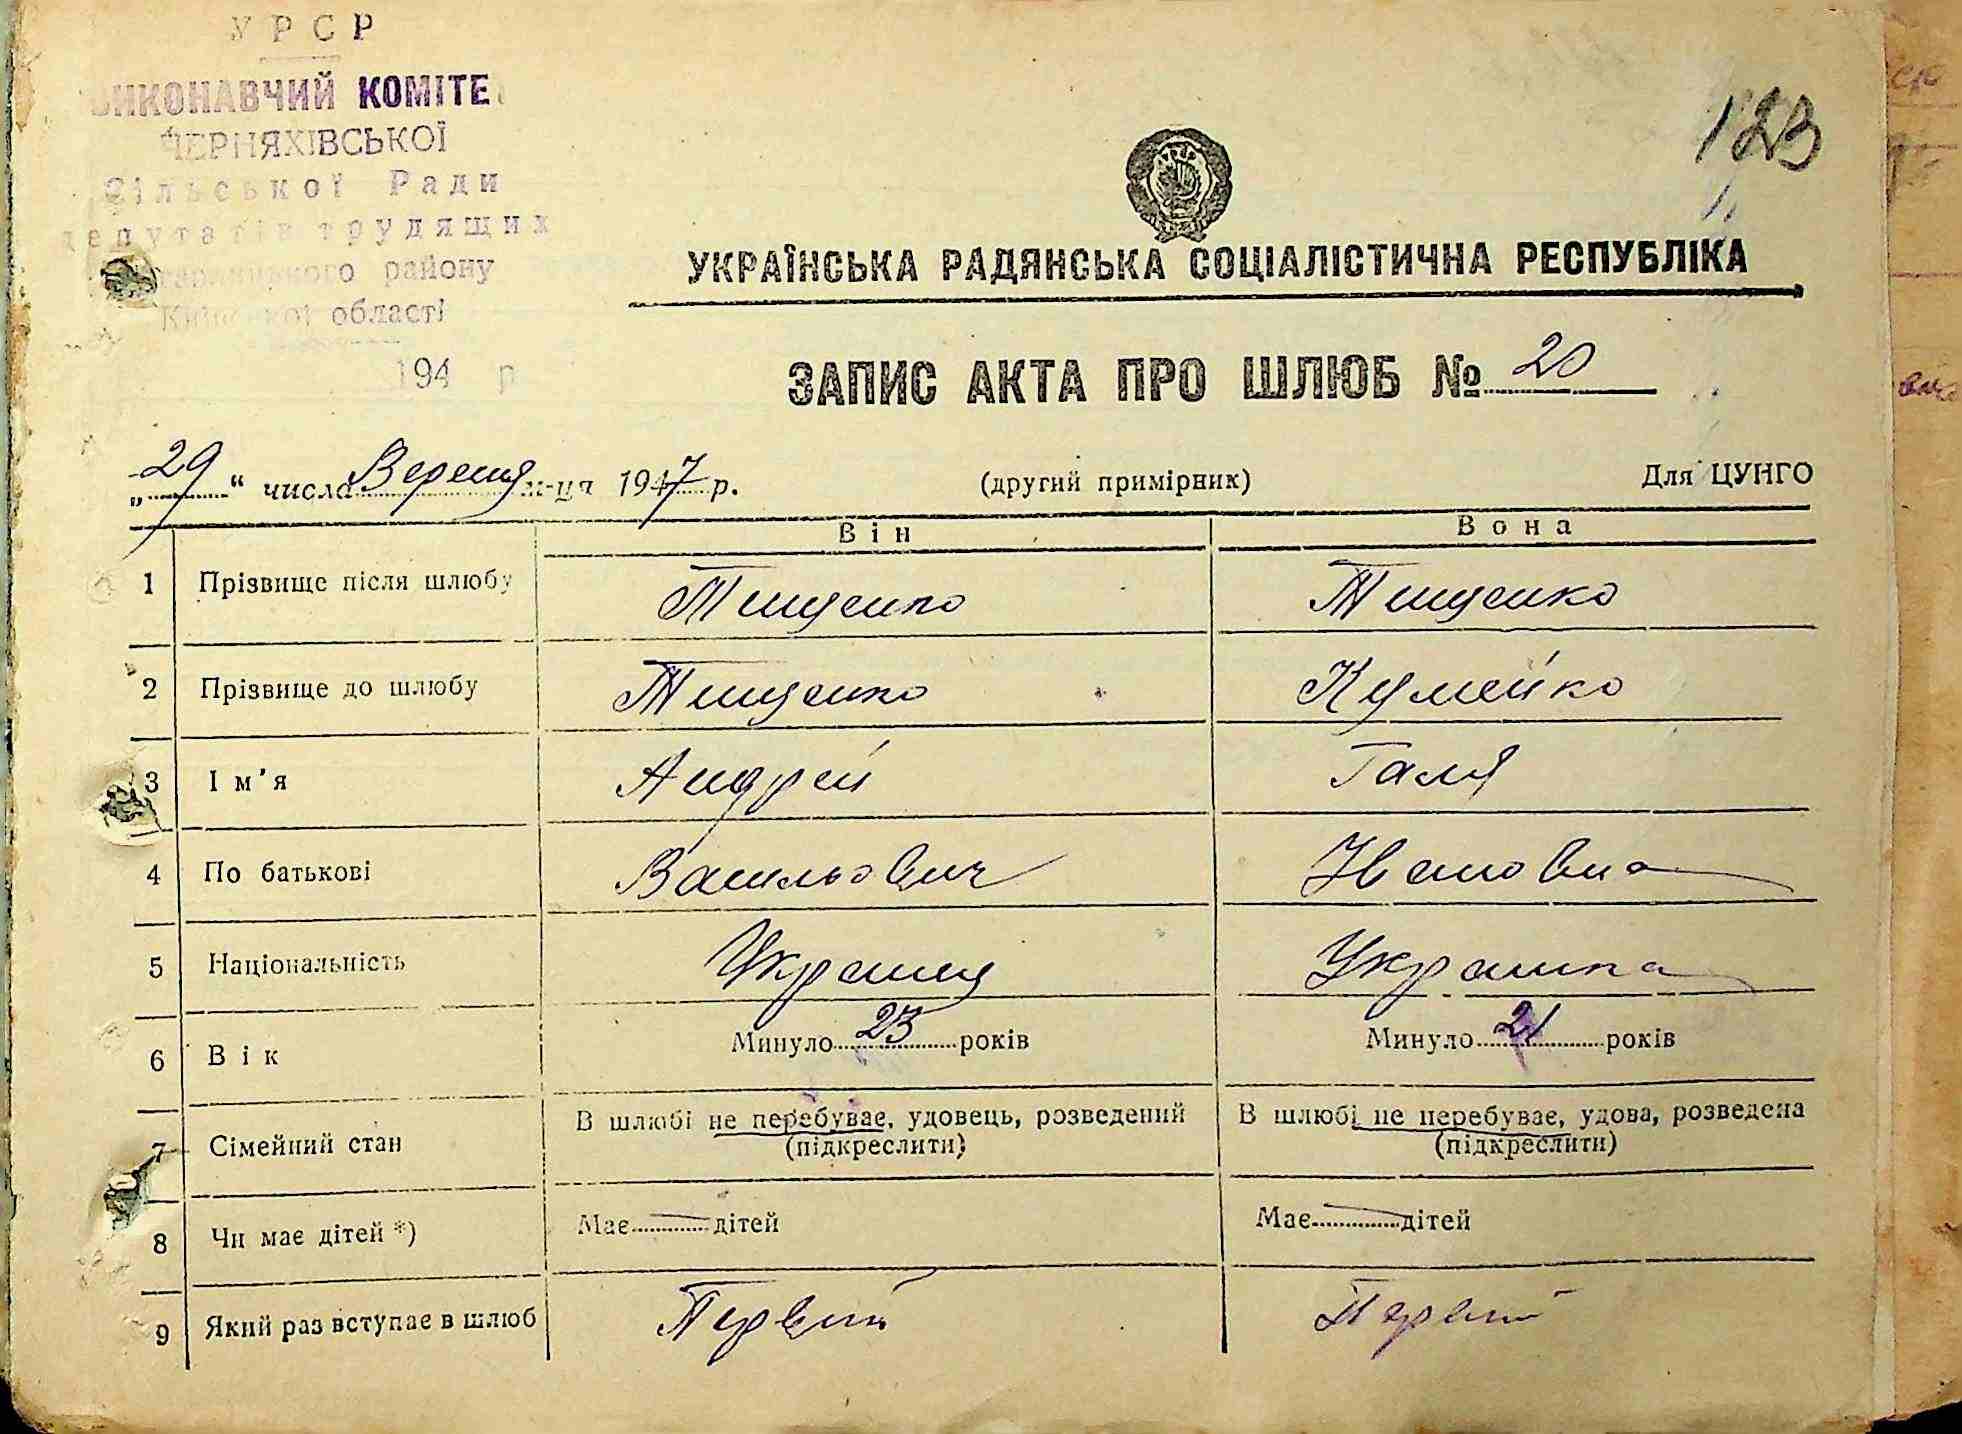 УРСР
ВИКОНАВЧИЙ КОМІТЕТ
ЧЕРНЯХІВСЬКОЇ
Сільської Ради
депутатів трудящих
району
Київської області
194 р
123
УКРАЇНСЬКА РАДЯНСЬКА СОЦІАЛІСТИЧНА РЕСПУБЛІКА
ЗАПИС АКТА ПРО ШЛЮБ № 20
„29“ числа Вересня м-ця 1947 р. (другий примірник) Для ЦУНГО
Він Вона
1 Прізвище після шлюбу Тищенко Тищенко
2 Прізвище до шлюбу Тищенко Кумейко
3 Ім'я Андрей Галя
4 По батькові Васильович Ивановна
5 Національність Украинец Украинка
6 Вік Минуло 23 років Минуло 21 років
7 Сімейний стан В шлюбі не перебуває, удовець, розведений (підкреслити) В шлюбі не перебуває, удова, розведена (підкреслити)
8 Чи має дітей *) Має — дітей Має — дітей
9 Який раз вступає в шлюб Первий Первий